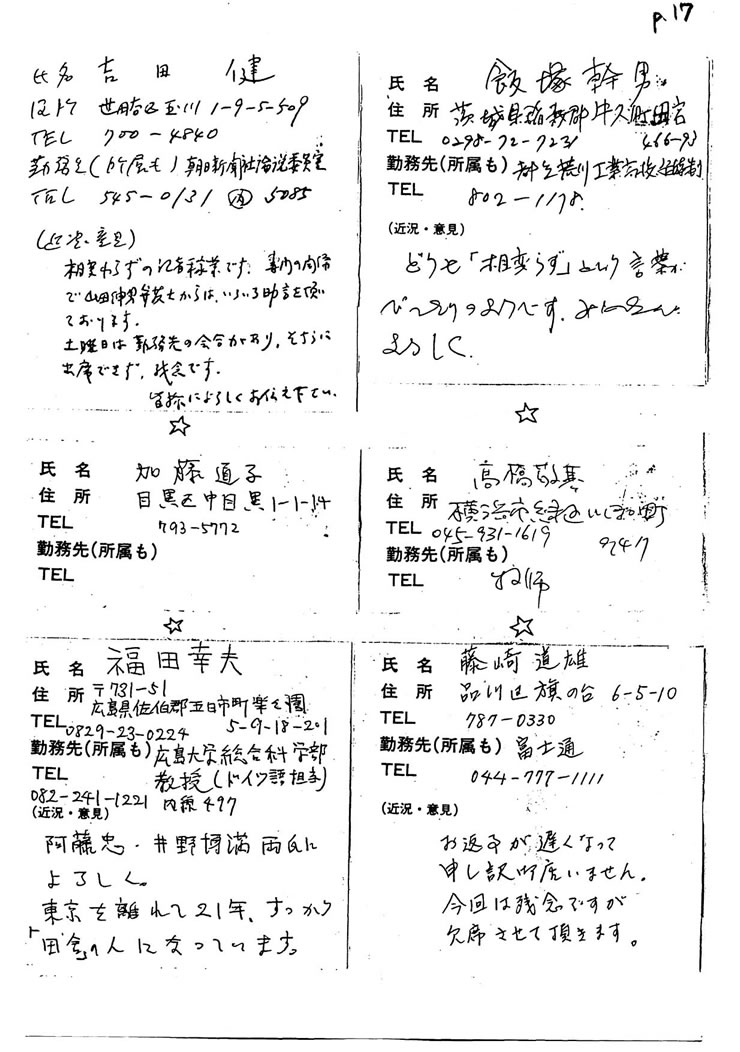 p.17
氏名 吉田 健
住所 世田谷区玉川 1-9-5-509
TEL 700-4840
勤務先(所属も) 朝日新聞社論説委員室
TEL 545-0131 内 5085
(近況・意見)
相変わらずの記者稼業です。
ております。
土曜日は勤務先の会合があり、そちらに
出席できず、残念です。
皆様によろしくお伝え下さい。
☆
氏名 飯塚幹男
住所 茨城県稲敷郡牛久町田宮
466-93
TEL 0298-72-7231
勤務先(所属も)
TEL 802-1178
(近況・意見)
どうも「相変らず」という言葉が
ぴったりのようです。みなさん
よろしく。
☆
氏名 加藤道子
住所 目黒区中目黒1-1-14
TEL 793-5772
勤務先(所属も)
TEL
☆
氏名 高橋敬基
住所 横浜市緑区いぶき野町
TEL 045-931-1619
勤務先(所属も)
TEL 牧師
☆
氏名 福田幸夫
住所 〒731-51
広島県佐伯郡五日市町楽々園
5-9-18-201
TEL 0829-23-0224
勤務先(所属も) 広島大学総合科学部
教授(ドイツ語担当)
TEL 082-241-1221 内線497
(近況・意見)
阿藤忠・井野博満両氏に
よろしく。
東京を離れて21年、すっかり
「田舎」の人になっています。
氏名 藤崎道雄
住所 品川区旗の台 6-5-10
TEL 787-0330
勤務先(所属も) 富士通
TEL 044-777-1111
(近況・意見)
お返事が遅くなって
申し訳御座いません。
今回は残念ですが
欠席させて頂きます。